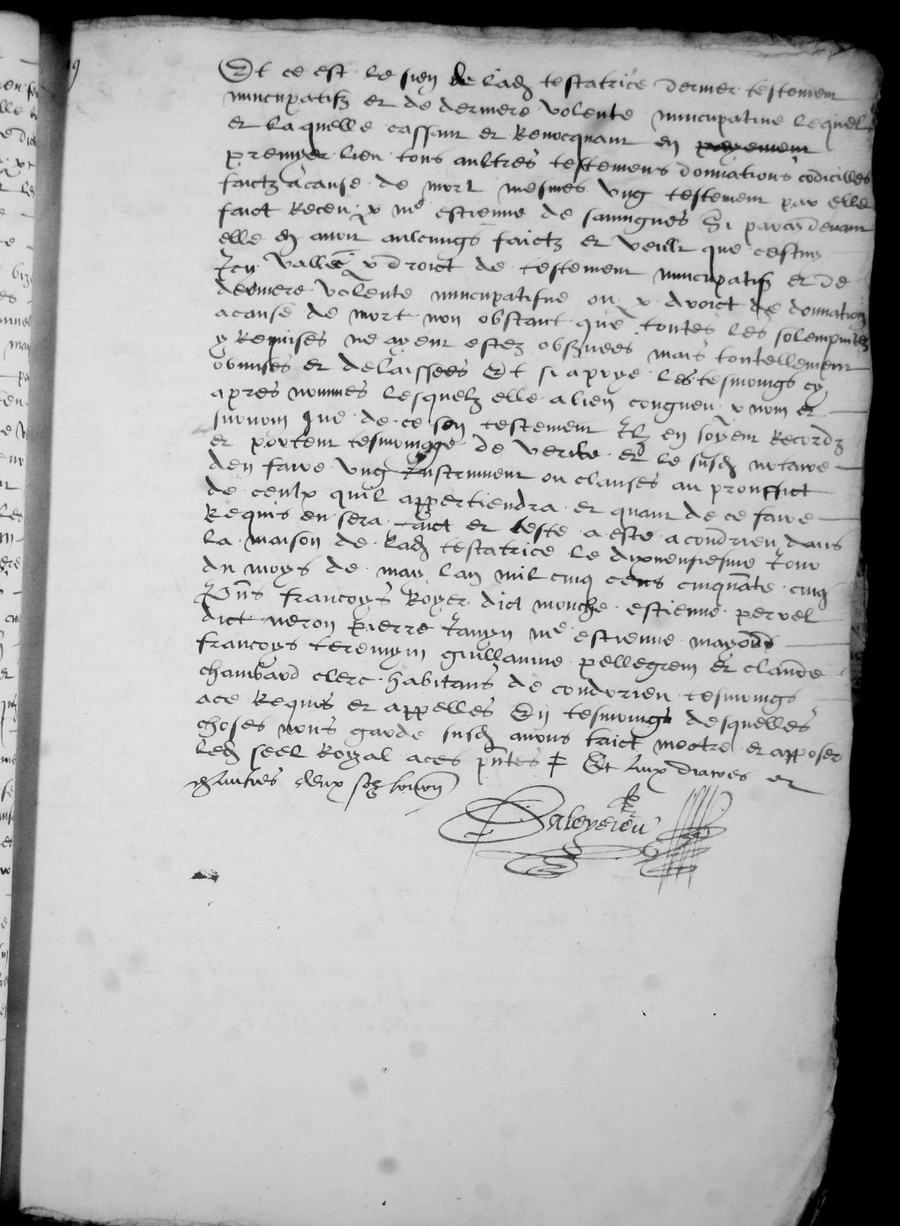 Et ce est le sien de lad testatrice dernier testement
nuncupatifz et de derniere volente nuncupative lequel
et laquelle cassant et Revocquant en payement
premyer lieu tous aultres testemens donnations codicilles
faictz a cause de mort mesmes ung testement par elle
faict Receu p me estienne de Si par cy devant
elle en avoir aulcungs faictz et veult que cestuy
Icy valle p droict de testement nuncupatifz et de
derniere volente nuncupatifve ou p droict de donnation
a cause de mort non obstant que toutes les solempnitez
y Requises ne ayent estez observees mais tontellement
obmises et delaissees Et si a prye les tesmoings cy
apres nommes lesquelz elle a bien congneu p nom et
surnom que de ce son testement Ilz en soyent Recordz
et portent tesmoinage de verite et le susd notaire
den faire ung Instrument ou clauses au prouffict
de ceulx quil appertiendra et quant de ce faire
Requis en sera faict et teste a este a condrieu dans
la maison de lad testatrice le dixneufiesme Jour
du moys de may lan mil cinq cens cinquate cinq
Pns francoys Royer dict mouche estienne pervel
dict neron pierre Janyn me estienne mayoud
francoys teremyn guillaume pellegrem et claude
chambard clerc habitans de condrieu tesmoings
a ce Requis et appelles En tesmoings desquelles
choses nous garde susd avons faict mectre et apposer
led seel Royal a ces pntes Et